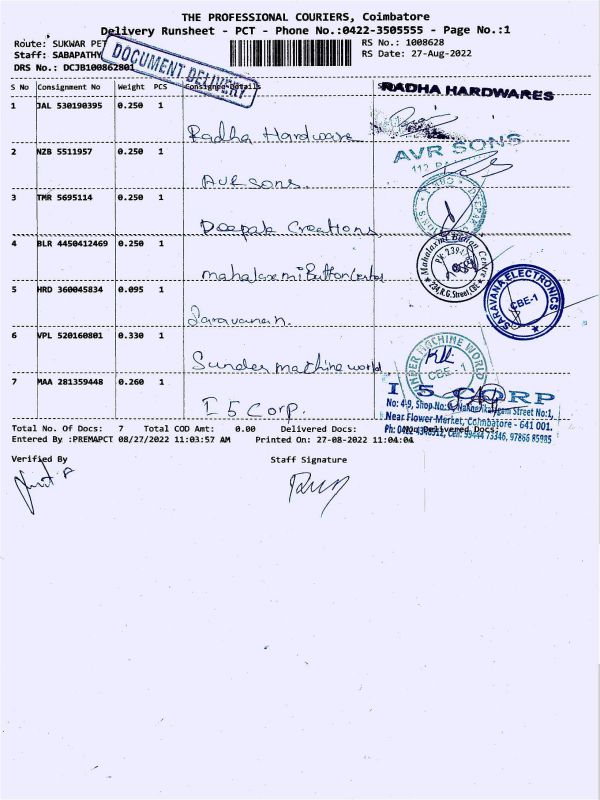 THE PROFESSIONAL COURIERS, Coimbatore
Delivery Runsheet - PCT - Phone No.:0422-3505555 - Page No.:1
Route: SUKWAR PET
RS No.: 1008628
Staff: SABAPATHY
RS Date: 27-Aug-2022
DRS No.: DCJB100862801
DOCUMENT DELIVERY
S No Consignment No Weight PCS Consignee Details
RADHA HARDWARES
1 JAL 530190395 0.250 1
Radha Hardware
AVR SONS
2 NZB 5511957 0.250 1
AVR sons.
3 TMR 5695114 0.250 1
Deepak Creations
4 BLR 4450412469 0.250 1
Mahalaxmi Button Centre
234, R.G. Street, CBE
mahalaxmi Button Center
5 HRD 360045834 0.095 1
SARAVANA ELECTRONICS
CBE-1
Saravanan.
6 VPL 520160801 0.330 1
MACHINE WORLD
CBE - 1
Sunder machine world.
7 MAA 281359448 0.260 1
I 5 CORP
I 5 Corp.
No: 4-9, Shop No: Street No:1,
Near Flower Market, Coimbatore - 641 001.
Total No. Of Docs: 7 Total COD Amt: 0.00 Delivered Docs: Non Delivered Docs:
Cell: 99444 73346, 97866 85985
Entered By :PREMAPCT 08/27/2022 11:03:57 AM Printed On: 27-08-2022 11:04:04
Verified By Staff Signature